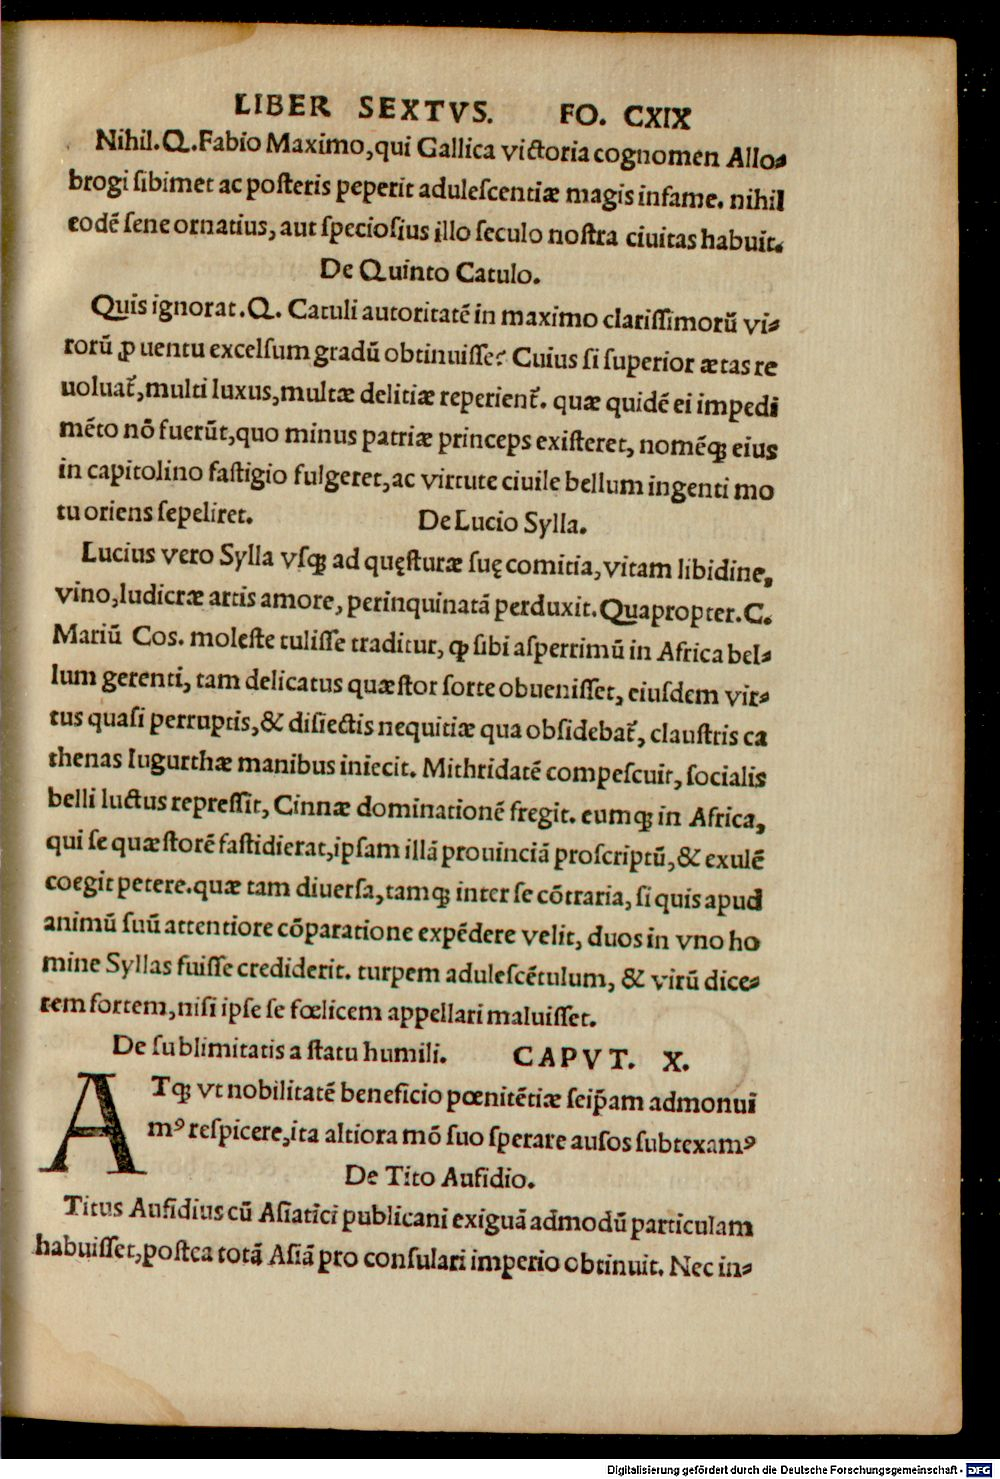 LIBER SEXTVS. FO. CXIX
Nihil.Q.Fabio Maximo,qui Gallica victoria cognomen Allo⸗
brogi ſibimet ac poſteris peperit aduleſcentiæ magis infame. nihil
eodē ſene ornatius, aut ſpecioſius illo ſeculo noſtra ciuitas habuit.
De Quinto Catulo.
Quis ignorat.Q. Catuli autoritatē in maximo clariſſimorū vi⸗
rorū ꝓuentu excelſum gradū obtinuiſſe? Cuius ſi ſuperior ætas re
uoluat᷑,multi luxus,multæ delitiæ reperient᷑. quæ quidē ei impedi
mēto nō fuerūt,quo minus patriæ princeps exiſteret, nomēq; eius
in capitolino faſtigio fulgeret,ac virtute ciuile bellum ingenti mo
tu oriens ſepeliret. De Lucio Sylla.
Lucius vero Sylla vſq; ad quęſturæ ſuę comitia,vitam libidine,
vino,ludicræ artis amore, perinquinatā perduxit.Quapropter.C.
Mariū Cos. moleſte tuliſſe traditur, ꝙ ſibi aſperrimū in Africa bel⸗
lum gerenti, tam delicatus quæſtor ſorte obueniſſet, eiuſdem vir⸗
tus quaſi perruptis,& diſiectis nequitiæ qua obſidebat᷑, clauſtris ca
thenas Iugurthæ manibus iniecit. Mithridatē compeſcuit, ſocialis
belli luctus repreſſit, Cinnæ dominationē fregit. eumq; in Africa,
qui ſe quæſtorē faſtidierat,ipſam illā prouinciā proſcriptū,& exulē
coegit petere.quæ tam diuerſa,tamq; inter ſe cōtraria, ſi quis apud
animū ſuū attentiore cōparatione expēdere velit, duos in vno ho
mine Syllas fuiſſe crediderit. turpem aduleſcētulum, & virū dice⸗
rem fortem,niſi ipſe ſe fœlicem appellari maluiſſet.
De ſublimitatis a ſtatu humili. CAPVT. X.
ATq; vt nobilitatē beneficio pœnitētiæ ſeip̄am admonui
mꝰ reſpicere,ita altiora mō ſuo ſperare auſos ſubtexamꝰ
De Tito Aufidio.
Titus Aufidius cū Aſiatici publicani exiguā admodū particulam
habuiſſet,poſtea totā Aſiā pro conſulari imperio obtinuit. Nec in⸗
Digitalisierung gefördert durch die Deutsche Forschungsgemeinschaft - DFG